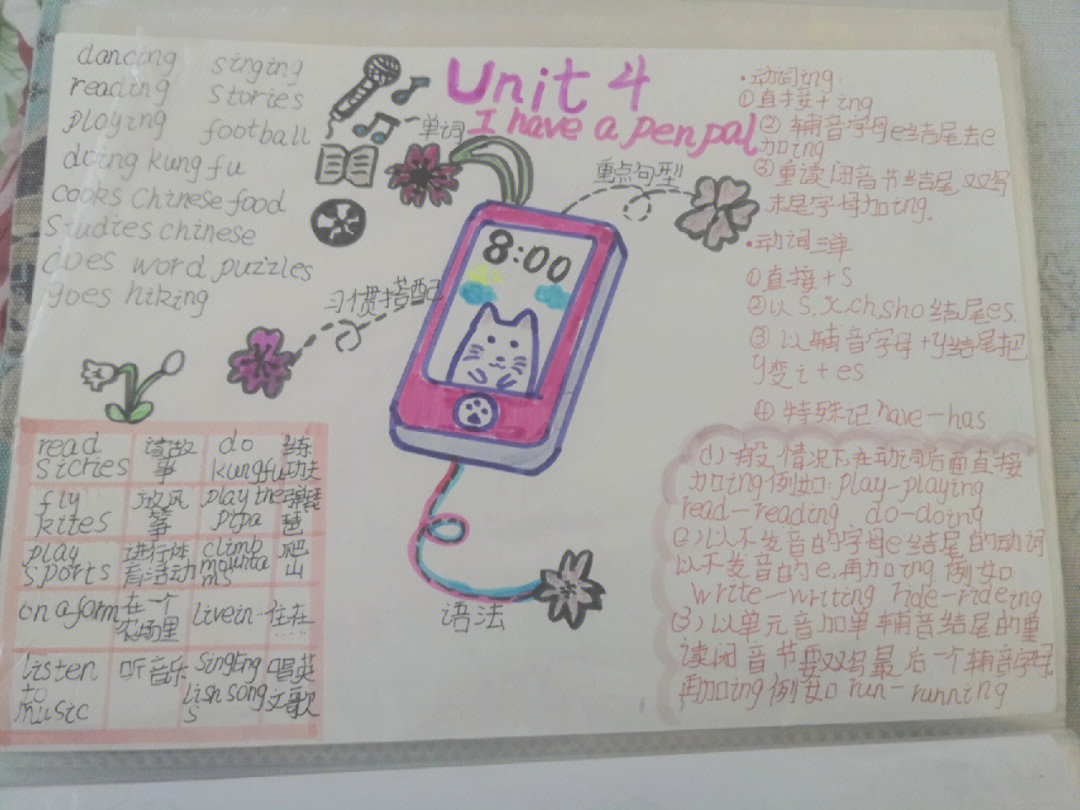 dancing singing
reading stories
playing football
doing kung fu
cooks Chinese food
Studies chinese
does word puzzles
goes hiking
Unit 4
I have a penpal
单词
重点句型
习惯搭配
语法
8:00
·动词ing:
①直接+ing
②辅音字母e结尾去e
加ing
③重读闭音节结尾双写
末尾字母加ing.
·动词三单
①直接+s
②以s,x.ch,sho结尾es.
③以辅音字母+y结尾把
y变i+es
④特殊记have-has
(1)一般情况下,在动词后面直接
加ing例如:play-playing
read-reading do-doing
(2)以不发音的字母e结尾的动词
以不发音的e,再加ing例如
write-writing ride-rideing
(3)以单元音加单辅音结尾的重
读闭音节要双写最后一个辅音字母,
再加ing例如run-running
read 读故 do 练
sicties 事 kungfu 功夫
fly 放风 play the 弹琵
kites 筝 pipa 琶
play 进行体 climb 爬
sports 育活动 mounta 山
ms
on a form 在一个 livein 住在
农场里 .....
listen 听音乐 singEng 唱英
to lish song 文歌
music s